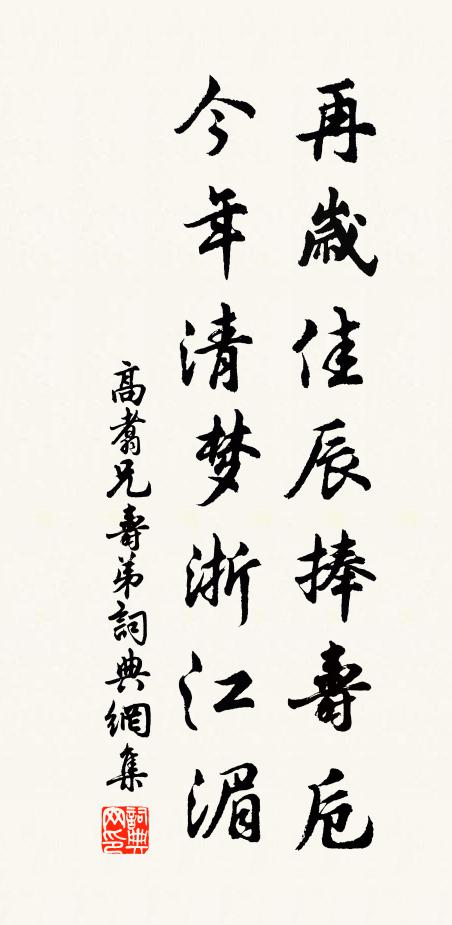 再歲佳辰捧壽卮
今年清梦浙江湄
高翥兄壽弟詞典網集
詞典网印